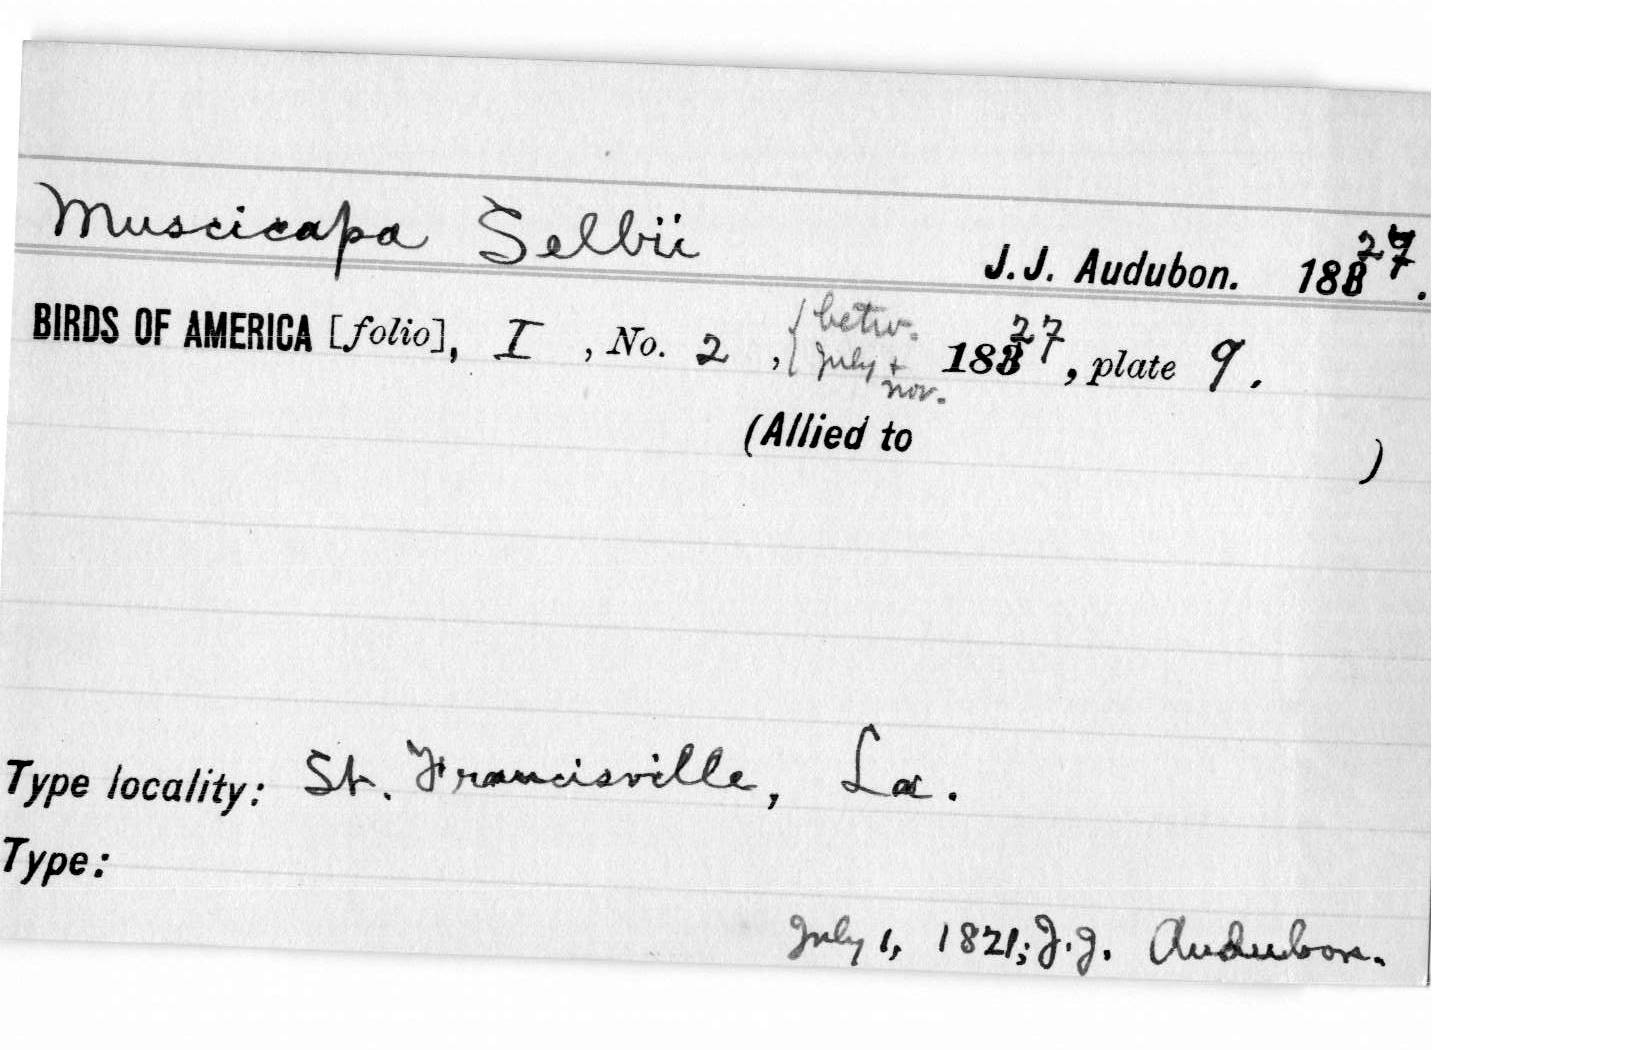 Muscicapa Selbii
J. J. Audubon. 1827.
BIRDS OF AMERICA [folio], I, No. 2, { betw. July + Nov. 1827, plate 9.
(Allied to )
Type locality: St. Francisville, La.
Type:
July 1, 1821; J. J. Audubon.